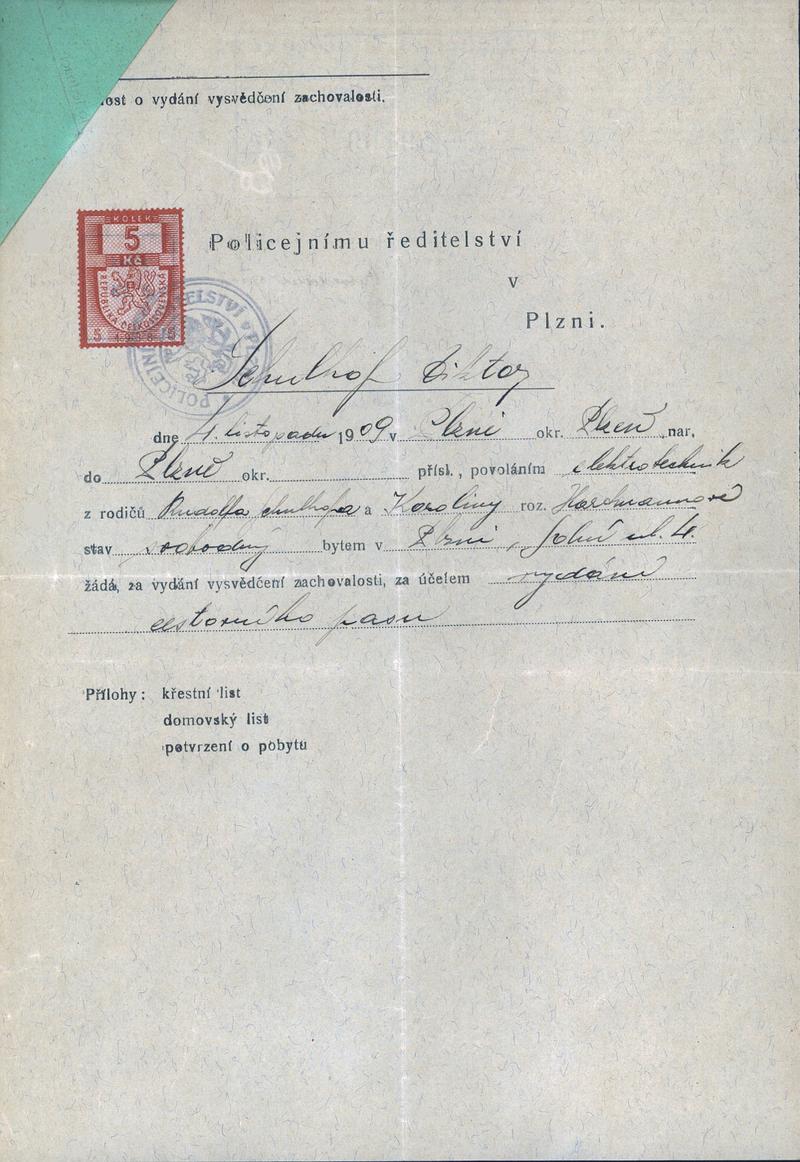 ost o vydání vysvědčení zachovalosti.
KOLEK
5
Kč
REPUBLIKA ČESKOSLOVENSKÁ
5 1938 5
Policejnímu ředitelství
v
Plzni.
Schulhof Viktor
dne 4. listopadu 1909 v Plzni okr. Plzeň nar.
do Plzně okr. přísl., povoláním elektrotechnik
z rodičů Rudolfa Schulhofa a Karoliny roz. Hartmannové
stav svobodný bytem v Plzni, ul. 4.
žádá, za vydání vysvědčení zachovalosti, za účelem vydání
cestovního pasu
Přílohy: křestní list
domovský list
potvrzení o pobytu